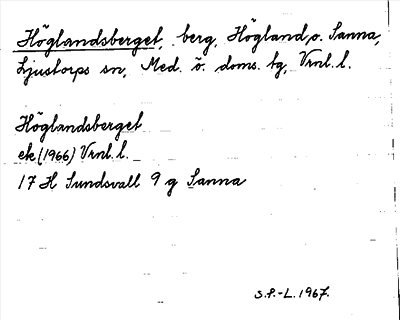 Höglandsberget, berg, Högland, o. Sanna,
Ljustorps sn, Med. ö. doms. tg, Vrnl. l.
Höglandsberget
ek (1966) Vrnl. l.
17 H Sundsvall 9 g Sanna
S.P.-L. 1967.